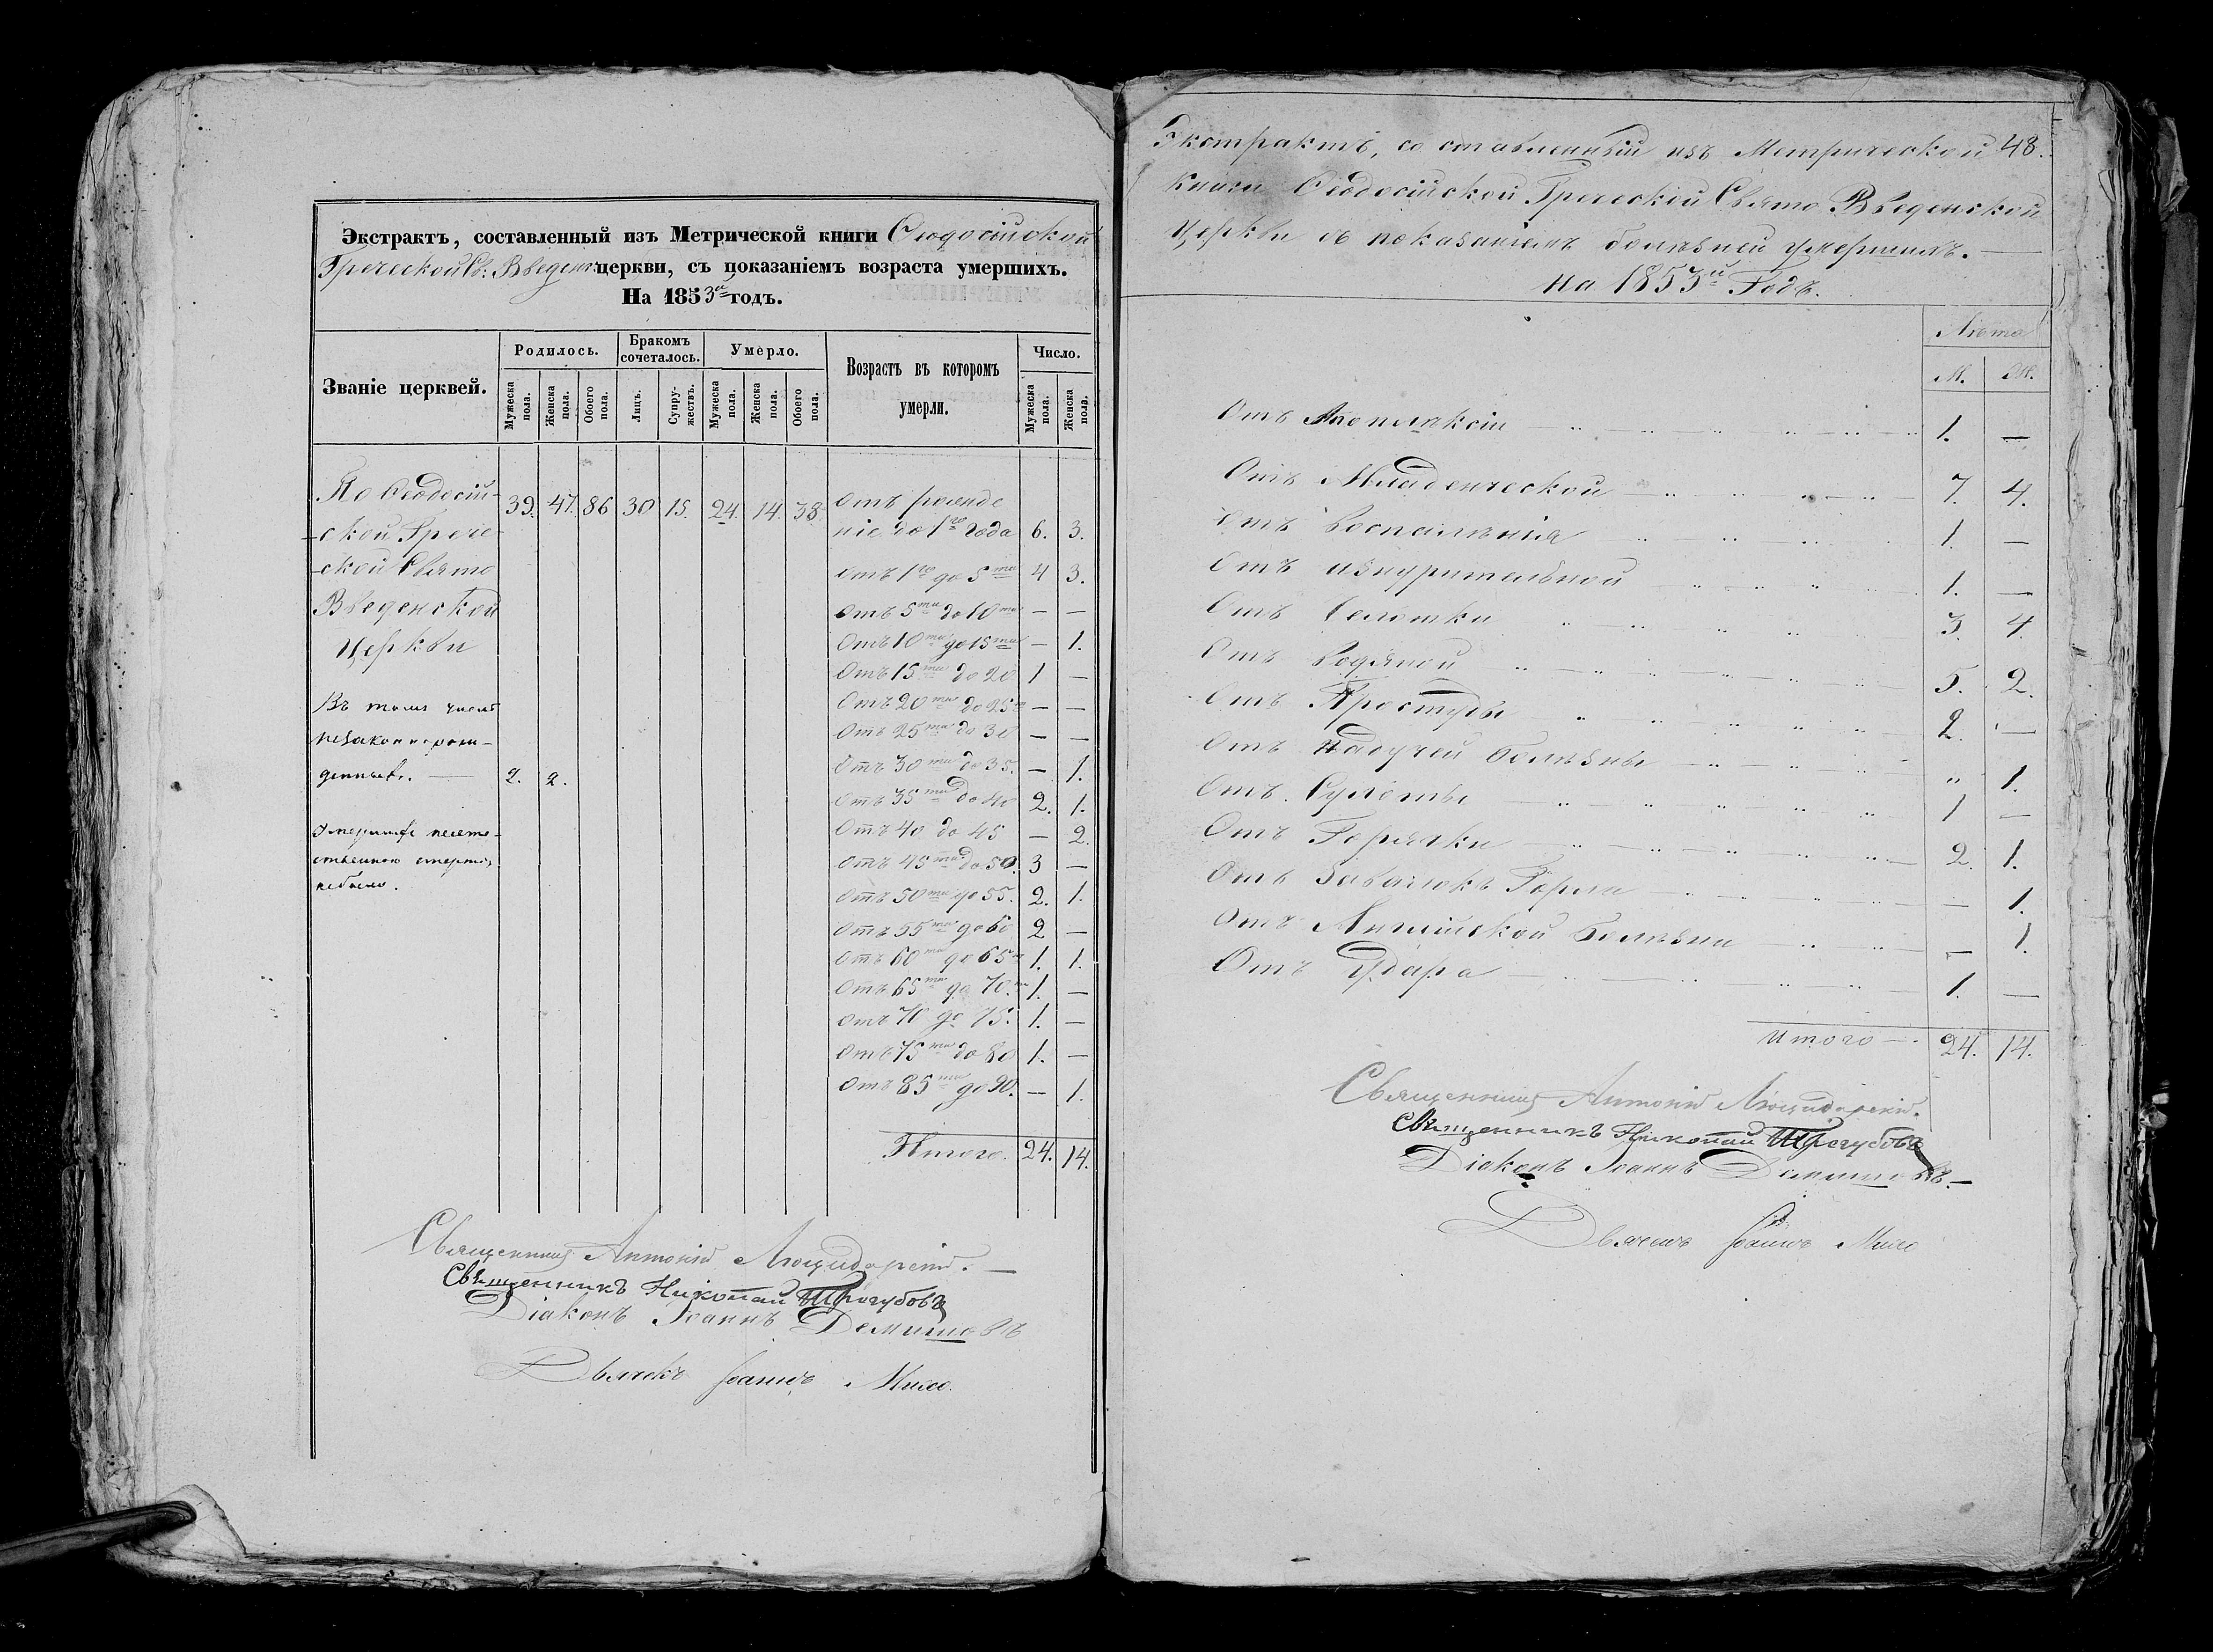 Экстрактъ, составленный изъ Метрической книги Ѳеодосійской
Греческой Св: Введен. церкви, съ показаніемъ возраста умершихъ.
На 1853й годъ.
Званіе церквей.
Родилось.
Бракомъ сочеталось.
Умерло.
Возрастъ въ которомъ умерли.
Число.
Мужеска пола.
Женска пола.
Обоего пола.
Лицъ.
Супружествъ.
Мужеска пола.
Женска пола.
Обоего пола.
Мужеска пола.
Женска пола.
По Ѳеодосій-
ской Грече-
ской Свято
Введенской
Церкви
39. 47. 86 30 15. 24. 14. 38.
Въ томъ числѣ
незаконнорож-
денныхъ. — 2. 2.
Умершихъ неесте-
ственною смертію
небыло.
Отъ рожде
нія до 1го года 6. 3.
Отъ 1го до 5ти 4 3.
Отъ 5ти до 10ти — —
Отъ 10ти до 15ти — 1.
Отъ 15ти до 20 1 —
Отъ 20ти до 25ти — —
Отъ 25ти до 30 — —
Отъ 30ти до 35. — 1.
Отъ 35ти до 40 2. 1.
Отъ 40 до 45 — 2.
Отъ 45ти до 50. 3 —
Отъ 50ти до 55. 2. 1.
Отъ 55ти до 60 2 —
Отъ 60ти до 65ти 1. 1.
Отъ 65ти до 70.ти 1. —
Отъ 70 до 75. 1. —
Отъ 75ти до 80 1. —
Отъ 85ти до 90. — 1.
Итого. 24. 14.
Священникъ Антоній
Священникъ Николай Трегубовъ
Діаконъ Іоаннъ Демишовъ
Дьячекъ Іоаннъ
48.
Экстрактъ, составленный изъ Метрической
Книги Ѳеодосійской Греческой Свято Введенской
Церкви съ показаніемъ болѣзней умершихъ. —
на 1853й Годъ.
Лѣта
М. Ж.
Отъ Апоплексіи 1. —
Отъ Младенческой 7. 4.
Отъ Воспаленія 1. —
Отъ изнурительной 1. —
Отъ Чехотки 3. 4.
Отъ Водяной 5. 2.
Отъ Простуды 2. —
Отъ Падучей болѣзны „ 1.
Отъ Сухоты 1 —
Отъ Горячки 2. 1.
Отъ Завалокъ Горла — 1.
Отъ Англійской болѣзни — 1.
Отъ Удара 1. —
Итого — 24. 14.
Священникъ Антоній
Священникъ Николай Трегубовъ
Діаконъ Іоаннъ Демишовъ. —
Дьячекъ Іоаннъ